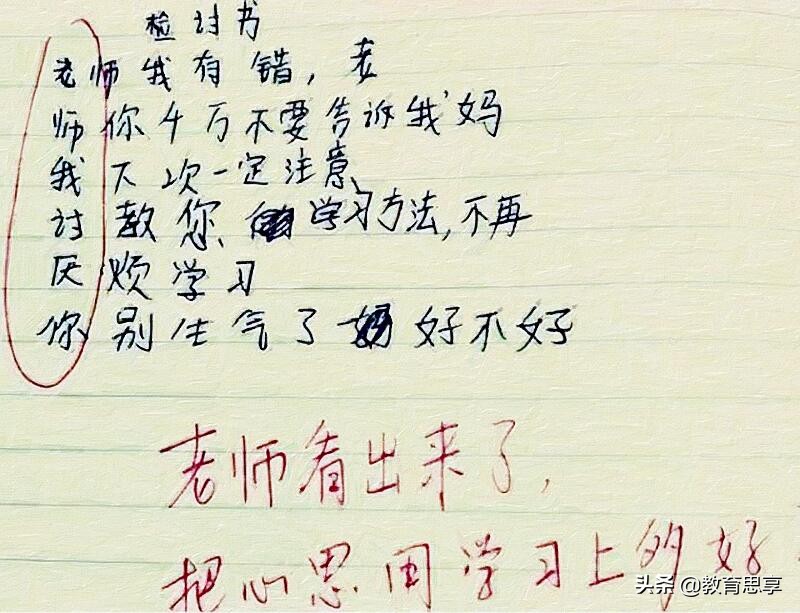 检讨书
老师我有错，老
师你千万不要告诉我妈
我下次一定注意
讨教您 学习方法，不再
厌烦学习
你别生气了 好不好
老师看出来了，
把心思用学习上多好
头条 @教育思享